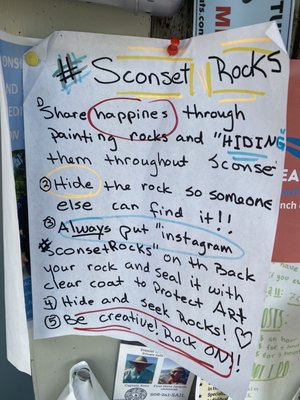 # Sconset Rocks
① Share happines through
painting rocks and "HIDING
them throughout Sconse
② Hide the rock so someone
else can find it!!
③ Always put "instagram
#SconsetRocks" on th Back
your rock and Seal it with
clear coat to Protect ART
④ Hide and seek Rocks! ♡
⑤ Be creative! Rock ON!!
508-241-SAIL